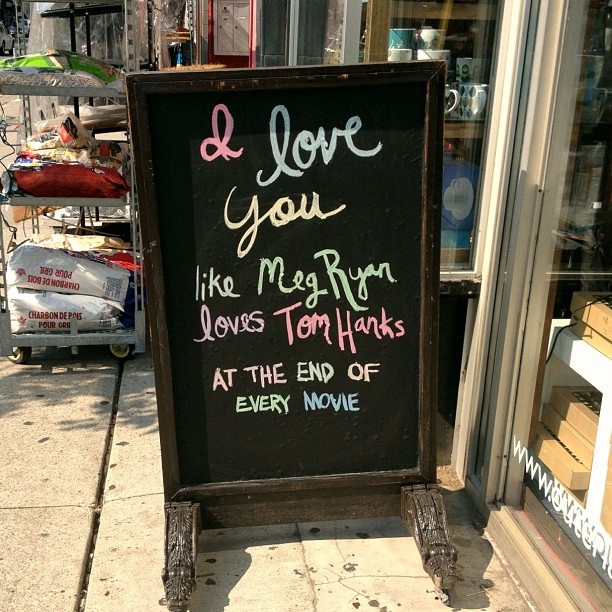 I love
you
like Meg Ryan
loves Tom Hanks
AT THE END OF
EVERY MOVIE
CHARBON DE BOIS
POUR GRIL
CHARBON DE BOIS
POUR GRIL